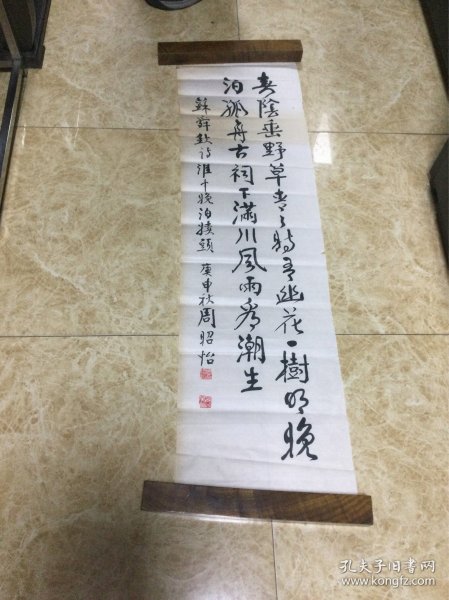 春陰垂野草青々時有幽花一樹明晚
泊孤舟古祠下滿川風雨看潮生
蘇舜欽詩淮中晚泊犢頭 庚申秋周昭怡
孔夫子旧书网
www.kongfz.com